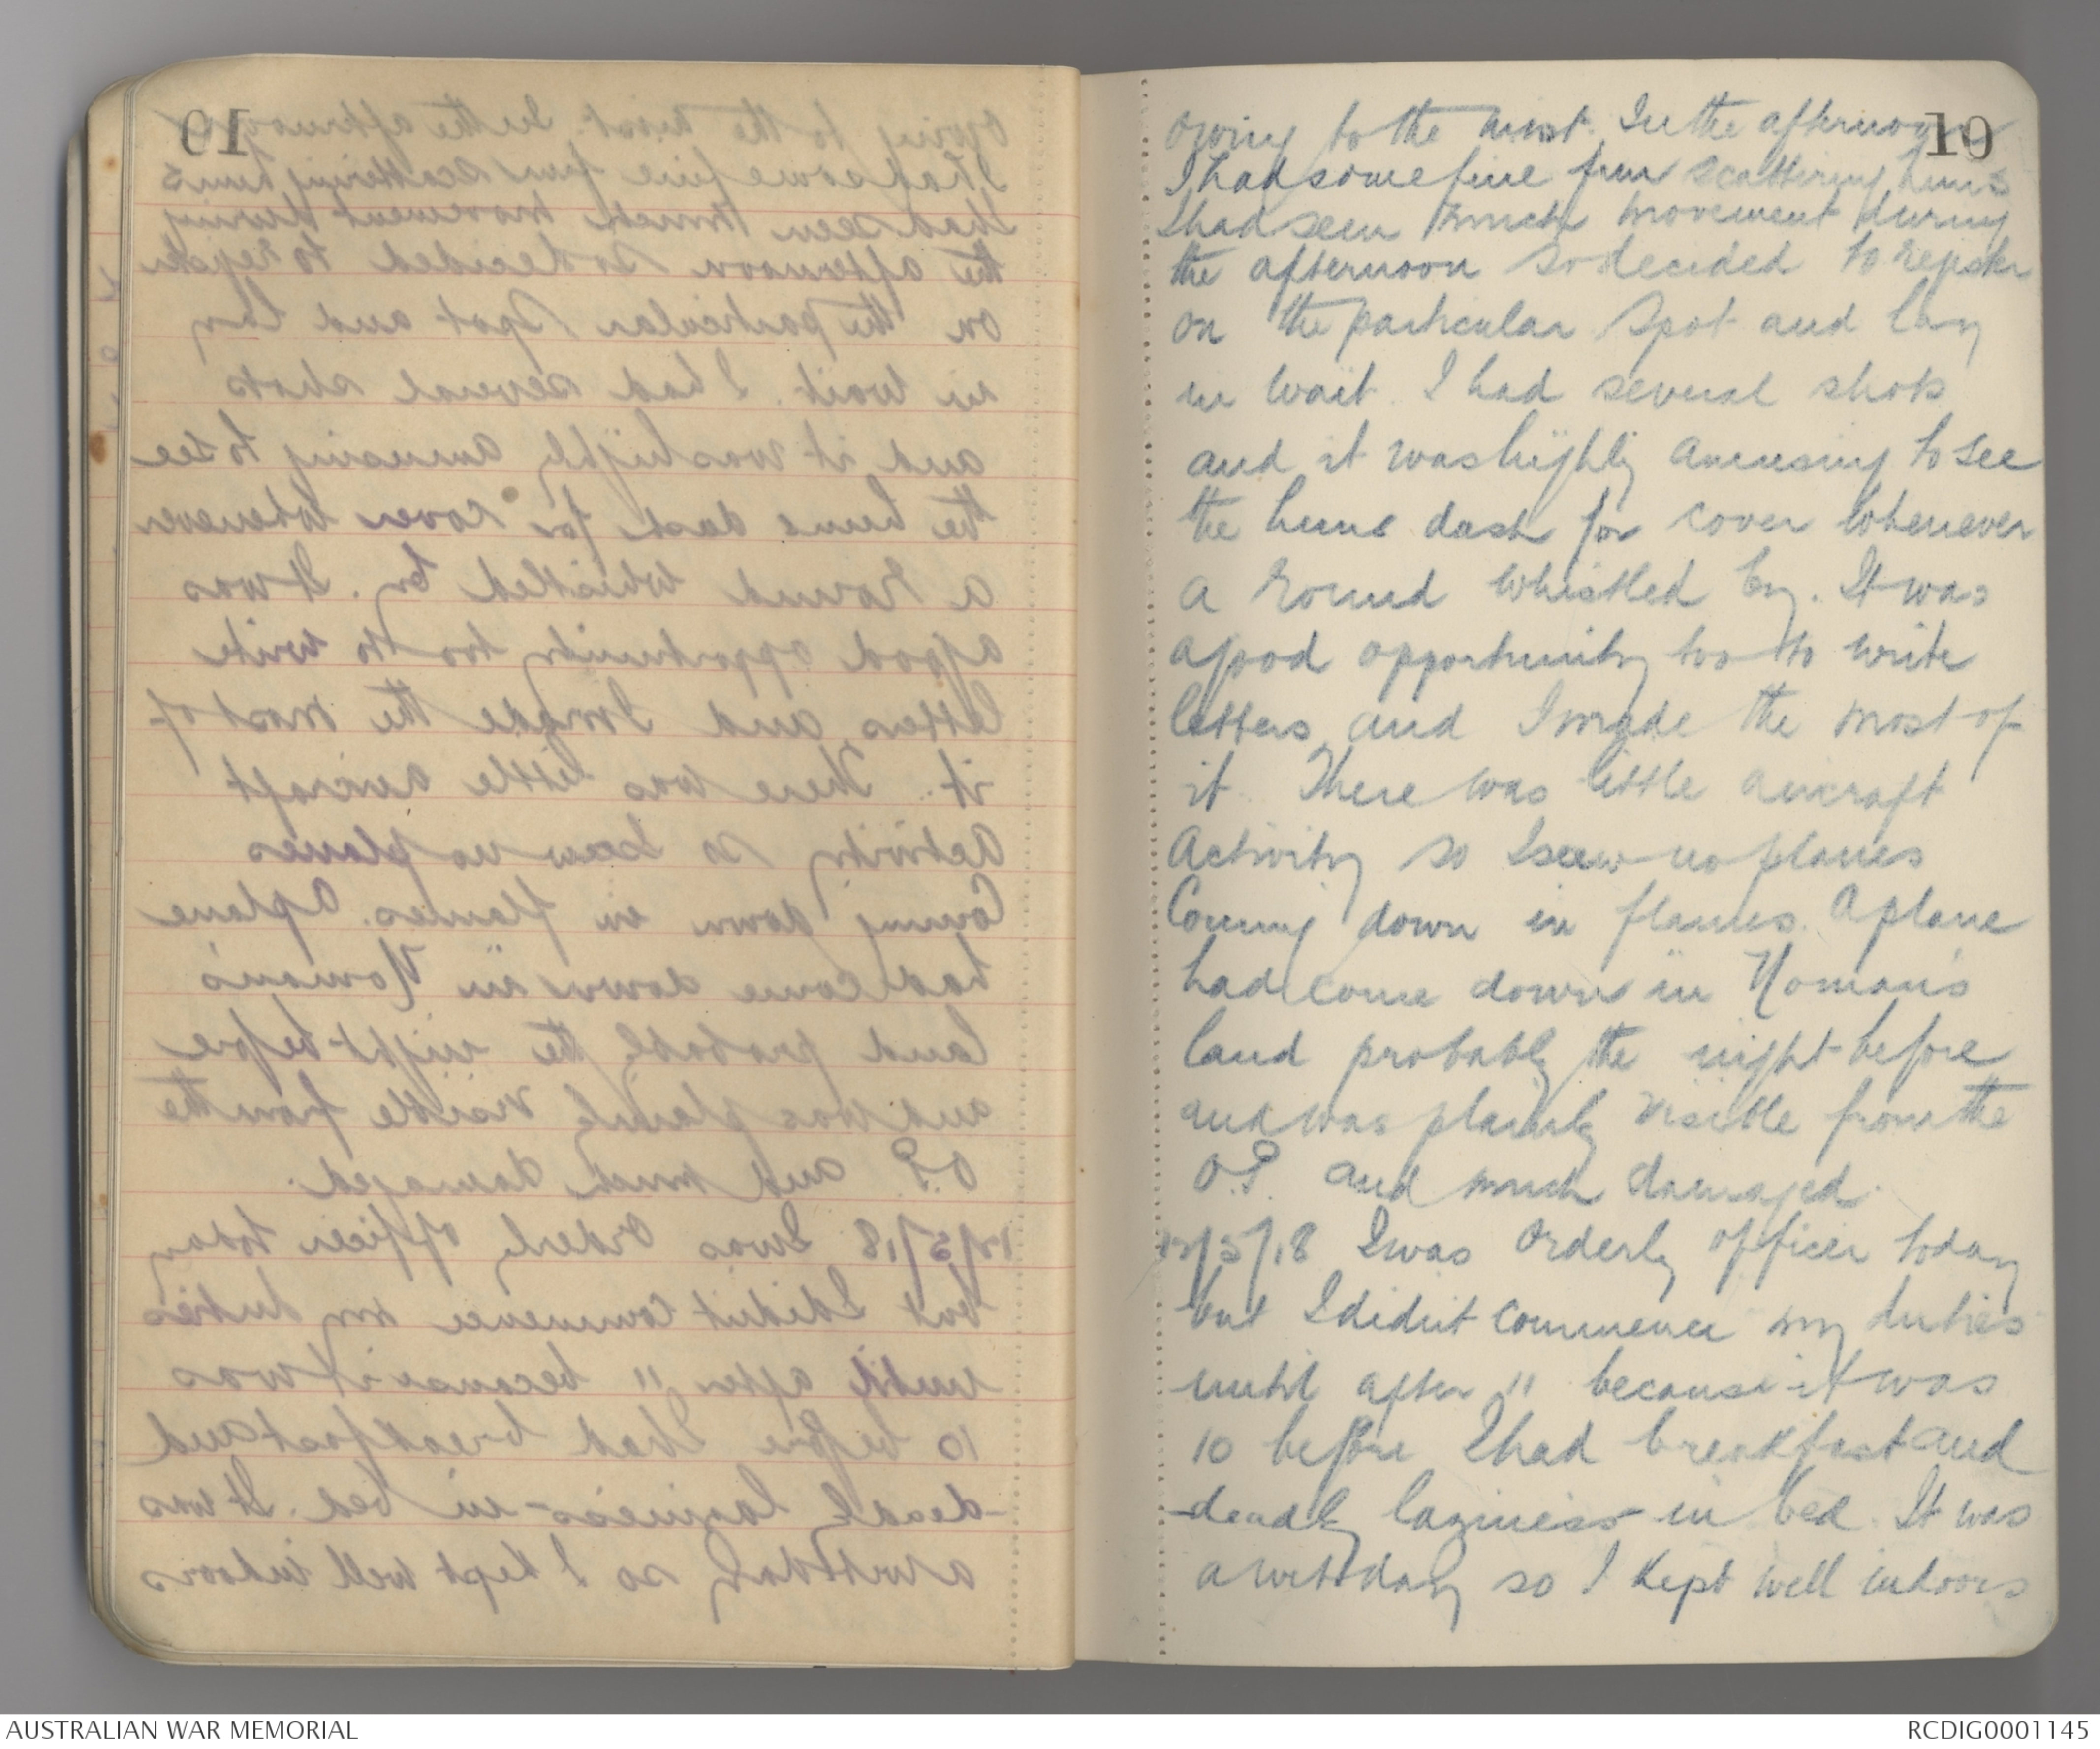 10
owing to the mist. In the afternoon
I had some fine fun scattering huns
I had seen much movement during
the afternoon so decided to register
on the particular spot and lay
in wait. I had several shots
and it was highly amusing to see
the huns dash for cover whenever
a round whistled by. It was
a good opportunity too to write
letters and I made the most of
it. There was little aircraft
activity so I saw no planes
Coming down in flames. A plane
had come down in Nomans
land probably the night before
and was plainly visible from the
O.P. and much damaged.
12/5/18 I was Orderly officer today
but I didnt commence my duties
until after 11 because it was
10 before I had breakfast and
deadly laziness in bed. It was
a wet day so I kept well indoors
AUSTRALIAN WAR MEMORIAL
RCDIG0001145